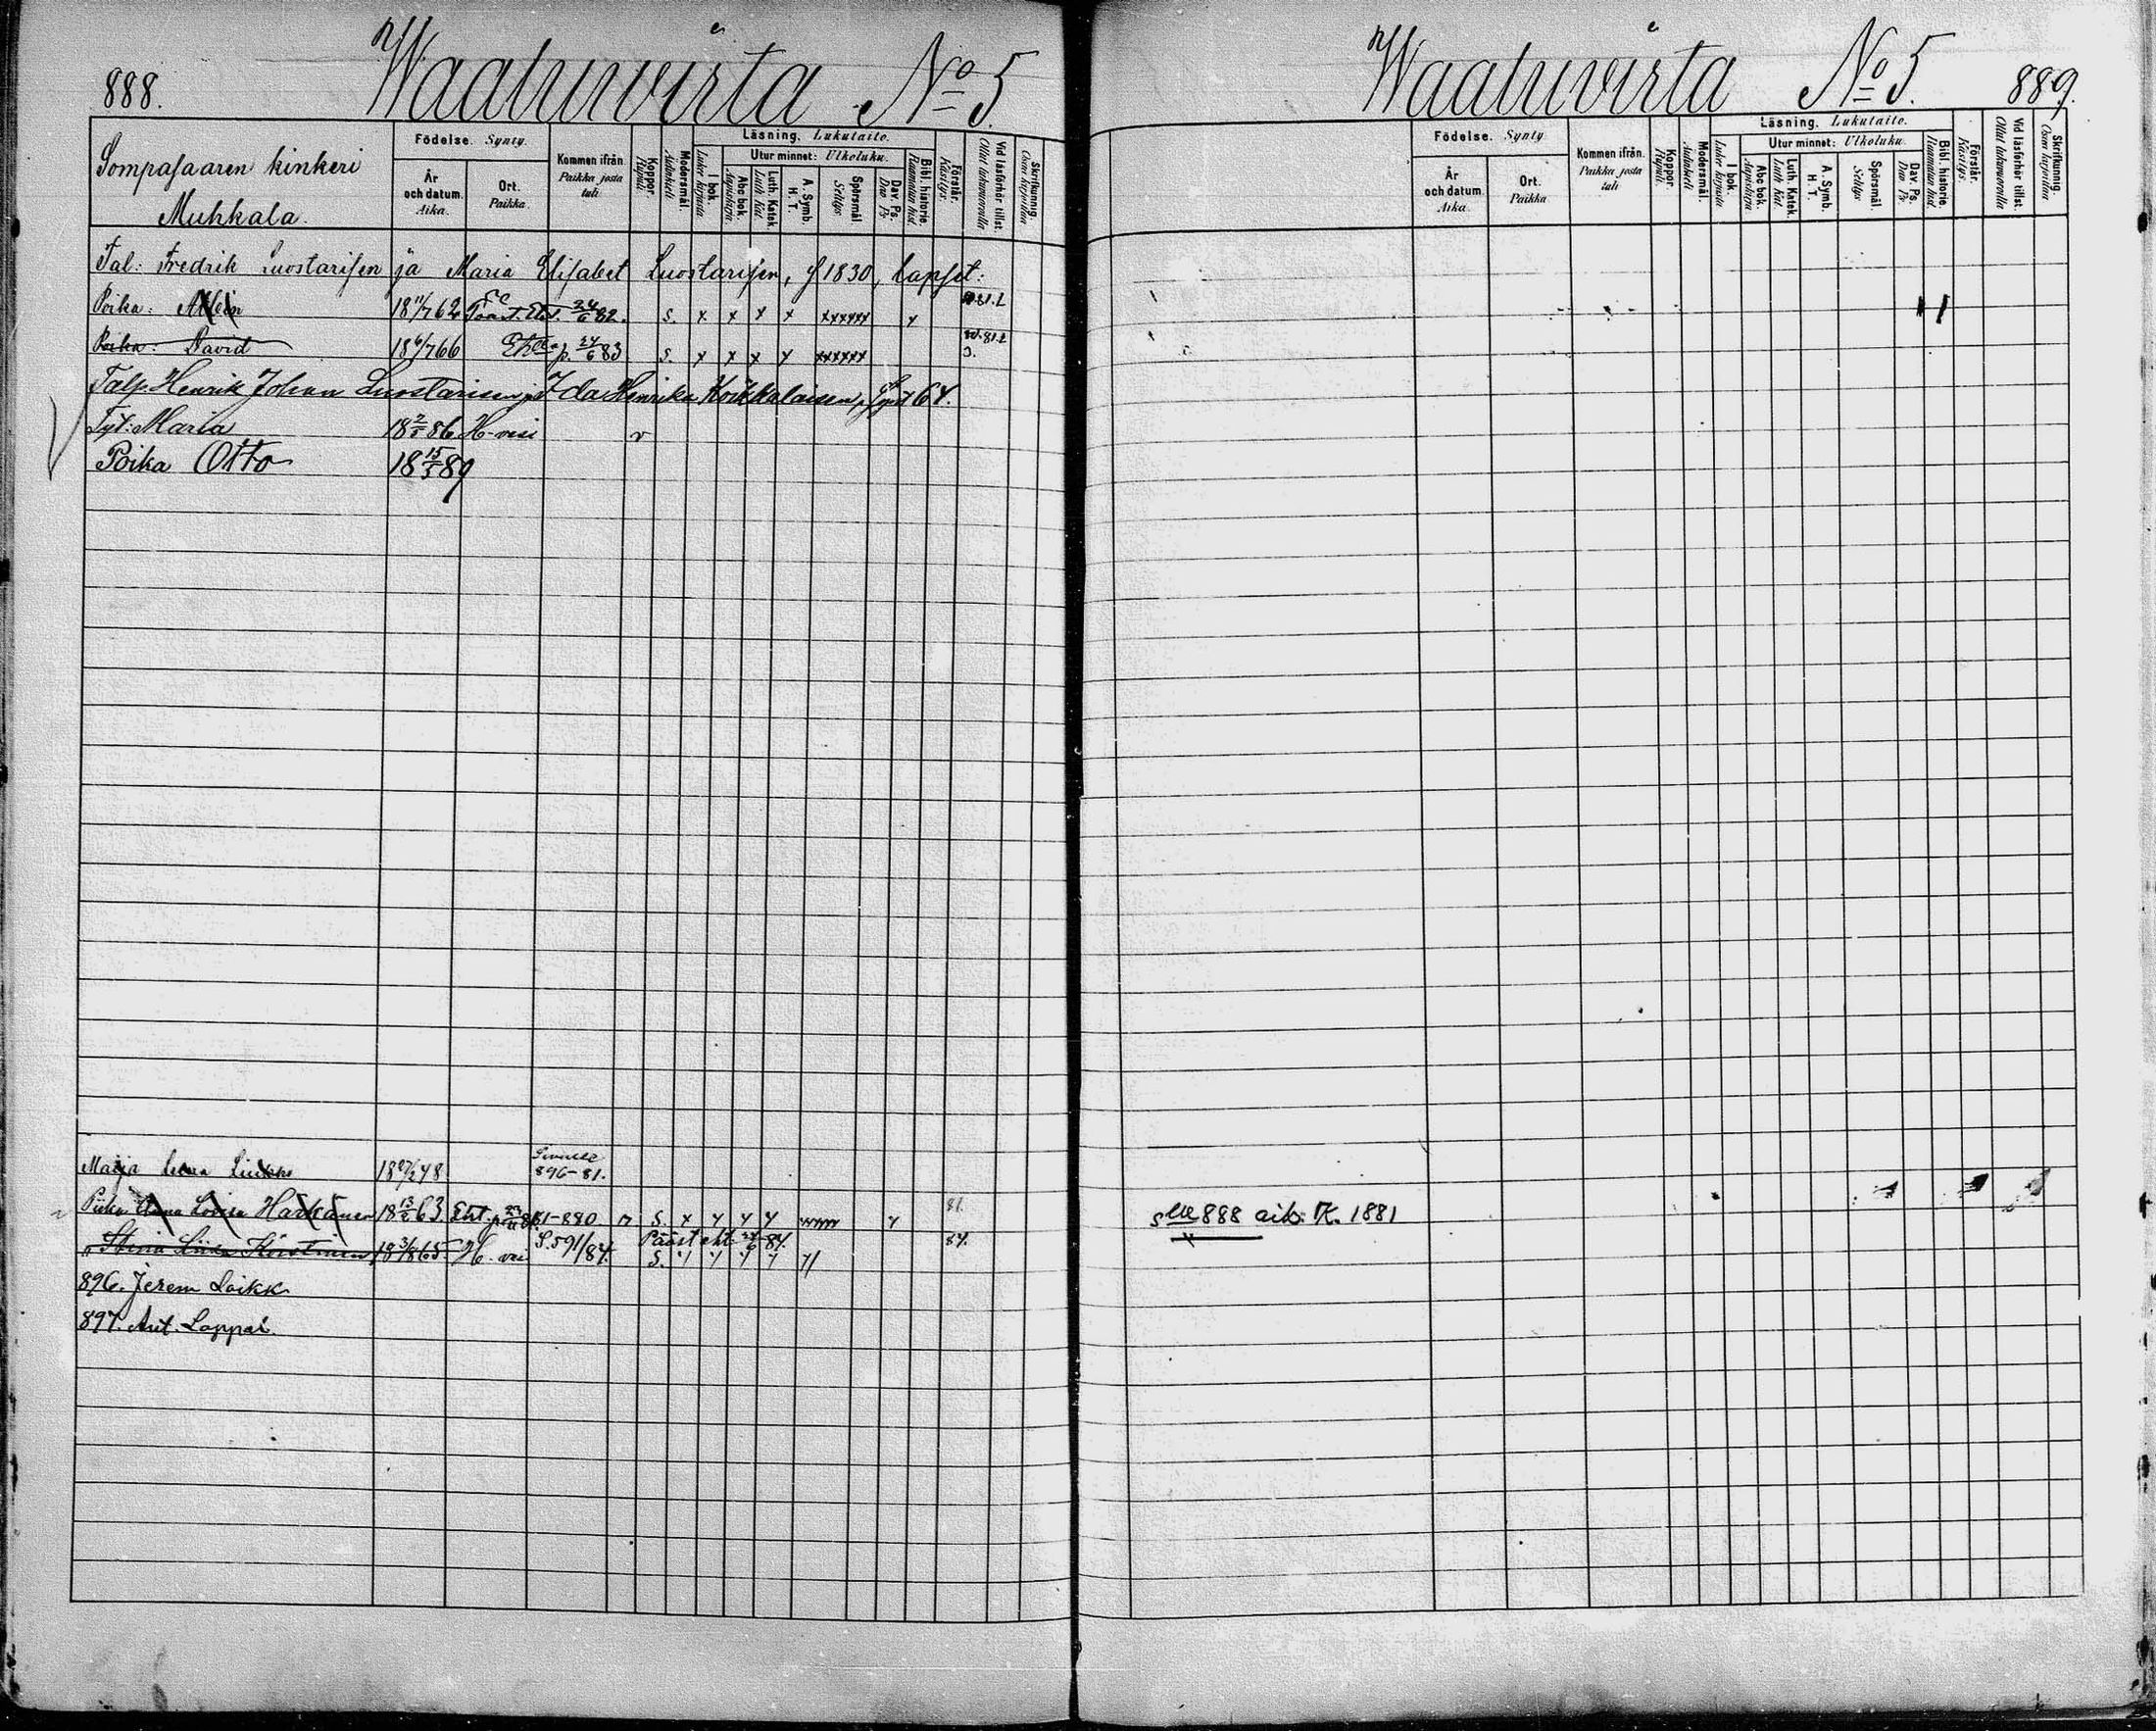 888. Waaluvirta No 5
Sompasaaren kinkeri
Muhkala.
Födelse. Synty.
År och datum. Aika.
Ort. Paikka.
Kommen ifrån. Paikka josta tuli.
Koppor. Rupuli.
Modersmål. Äidinkieli
Läsning. Lukutaito.
I bok. Lukee kirjasta
Utur minnet: Ulkoluku.
Abc bok. Aapiskirja
Luth. Katek. Luth. Kat.
A. Symb. H. T.
Spörsmål. Selitys.
Dav. Ps. Dav. Ps.
Bibl. historie. Raamatun hist.
Förstår. Käsitys.
Vid läsförhör tillst. Ollut lukuvuorolla
Skrifkunnig. Osaa kirjoittaa
Tal: Fredrik Luostarisen ja Maria Elisabet Luostarisen, f 1830, lapset:
Poika: 18 11/7 62 24/6 82. s. x x x x xxxxxx x
Poika: David 18 6/7 66 p. 24/6 83 s. x x x x xxxxxx
Talp. Henrik Johan Luostarisen ja Ida Henrika Kokkalaisen, 64.
Tyt: Maria 18 2/5 86 H-vesi v
Poika Otto 18 15/5 89
Maija Leena 48 896-81.
Piika Anna Lovisa Härkänen 18 13/2 63. 81-880 s. x y y y y 81.
Stiina Liisa 18 3/8 65 H. vesi S. 591/84. Pääst. eht. 24/6 84. s. 84.
896. Jerem Loikk
897. Ant. Lappal.
Waaluvirta No 5. 889.
Födelse. Synty.
År och datum. Aika.
Ort. Paikka
Kommen ifrån. Paikka josta tuli.
Koppor. Rupuli.
Modersmål. Äidinkieli
Läsning. Lukutaito.
I bok. Lukee kirjasta
Utur minnet: Ulkoluku.
Abc bok. Aapiskirja
Luth. Katek. Luth. Kat.
A. Symb. H. T.
Spörsmål. Selitys.
Dav. Ps. Dav. Ps.
Bibl. historie. Raamatun hist.
Förstår. Käsitys.
Vid läsförhör tillst. Ollut lukuvuorolla
Skrifkunnig. Osaa kirjoittaa
888 aik. K. 1881